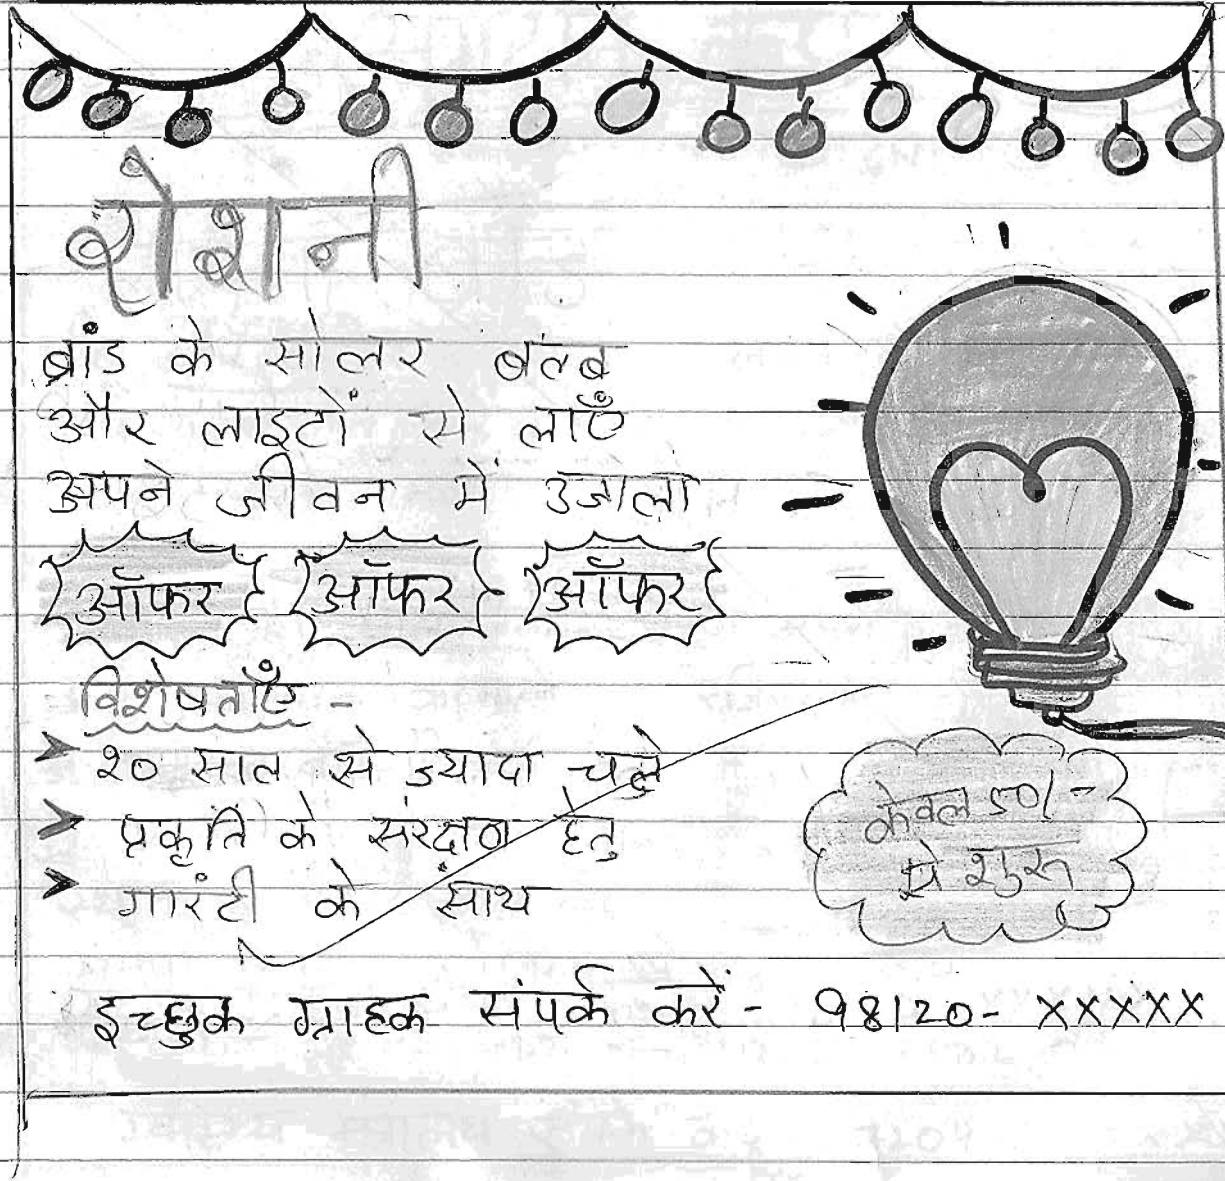 रोशनी
ब्रांड के सोलर बल्ब
और लाइटों से लाएँ
अपने जीवन में उजाला
ऑफर ऑफर ऑफर
विशेषताएँ -
२० साल से ज्यादा चले
प्रकृति के संरक्षण हेतु
गारंटी के साथ
केवल 50/-
से शुरू
इच्छुक ग्राहक संपर्क करें - 98120- XXXXX